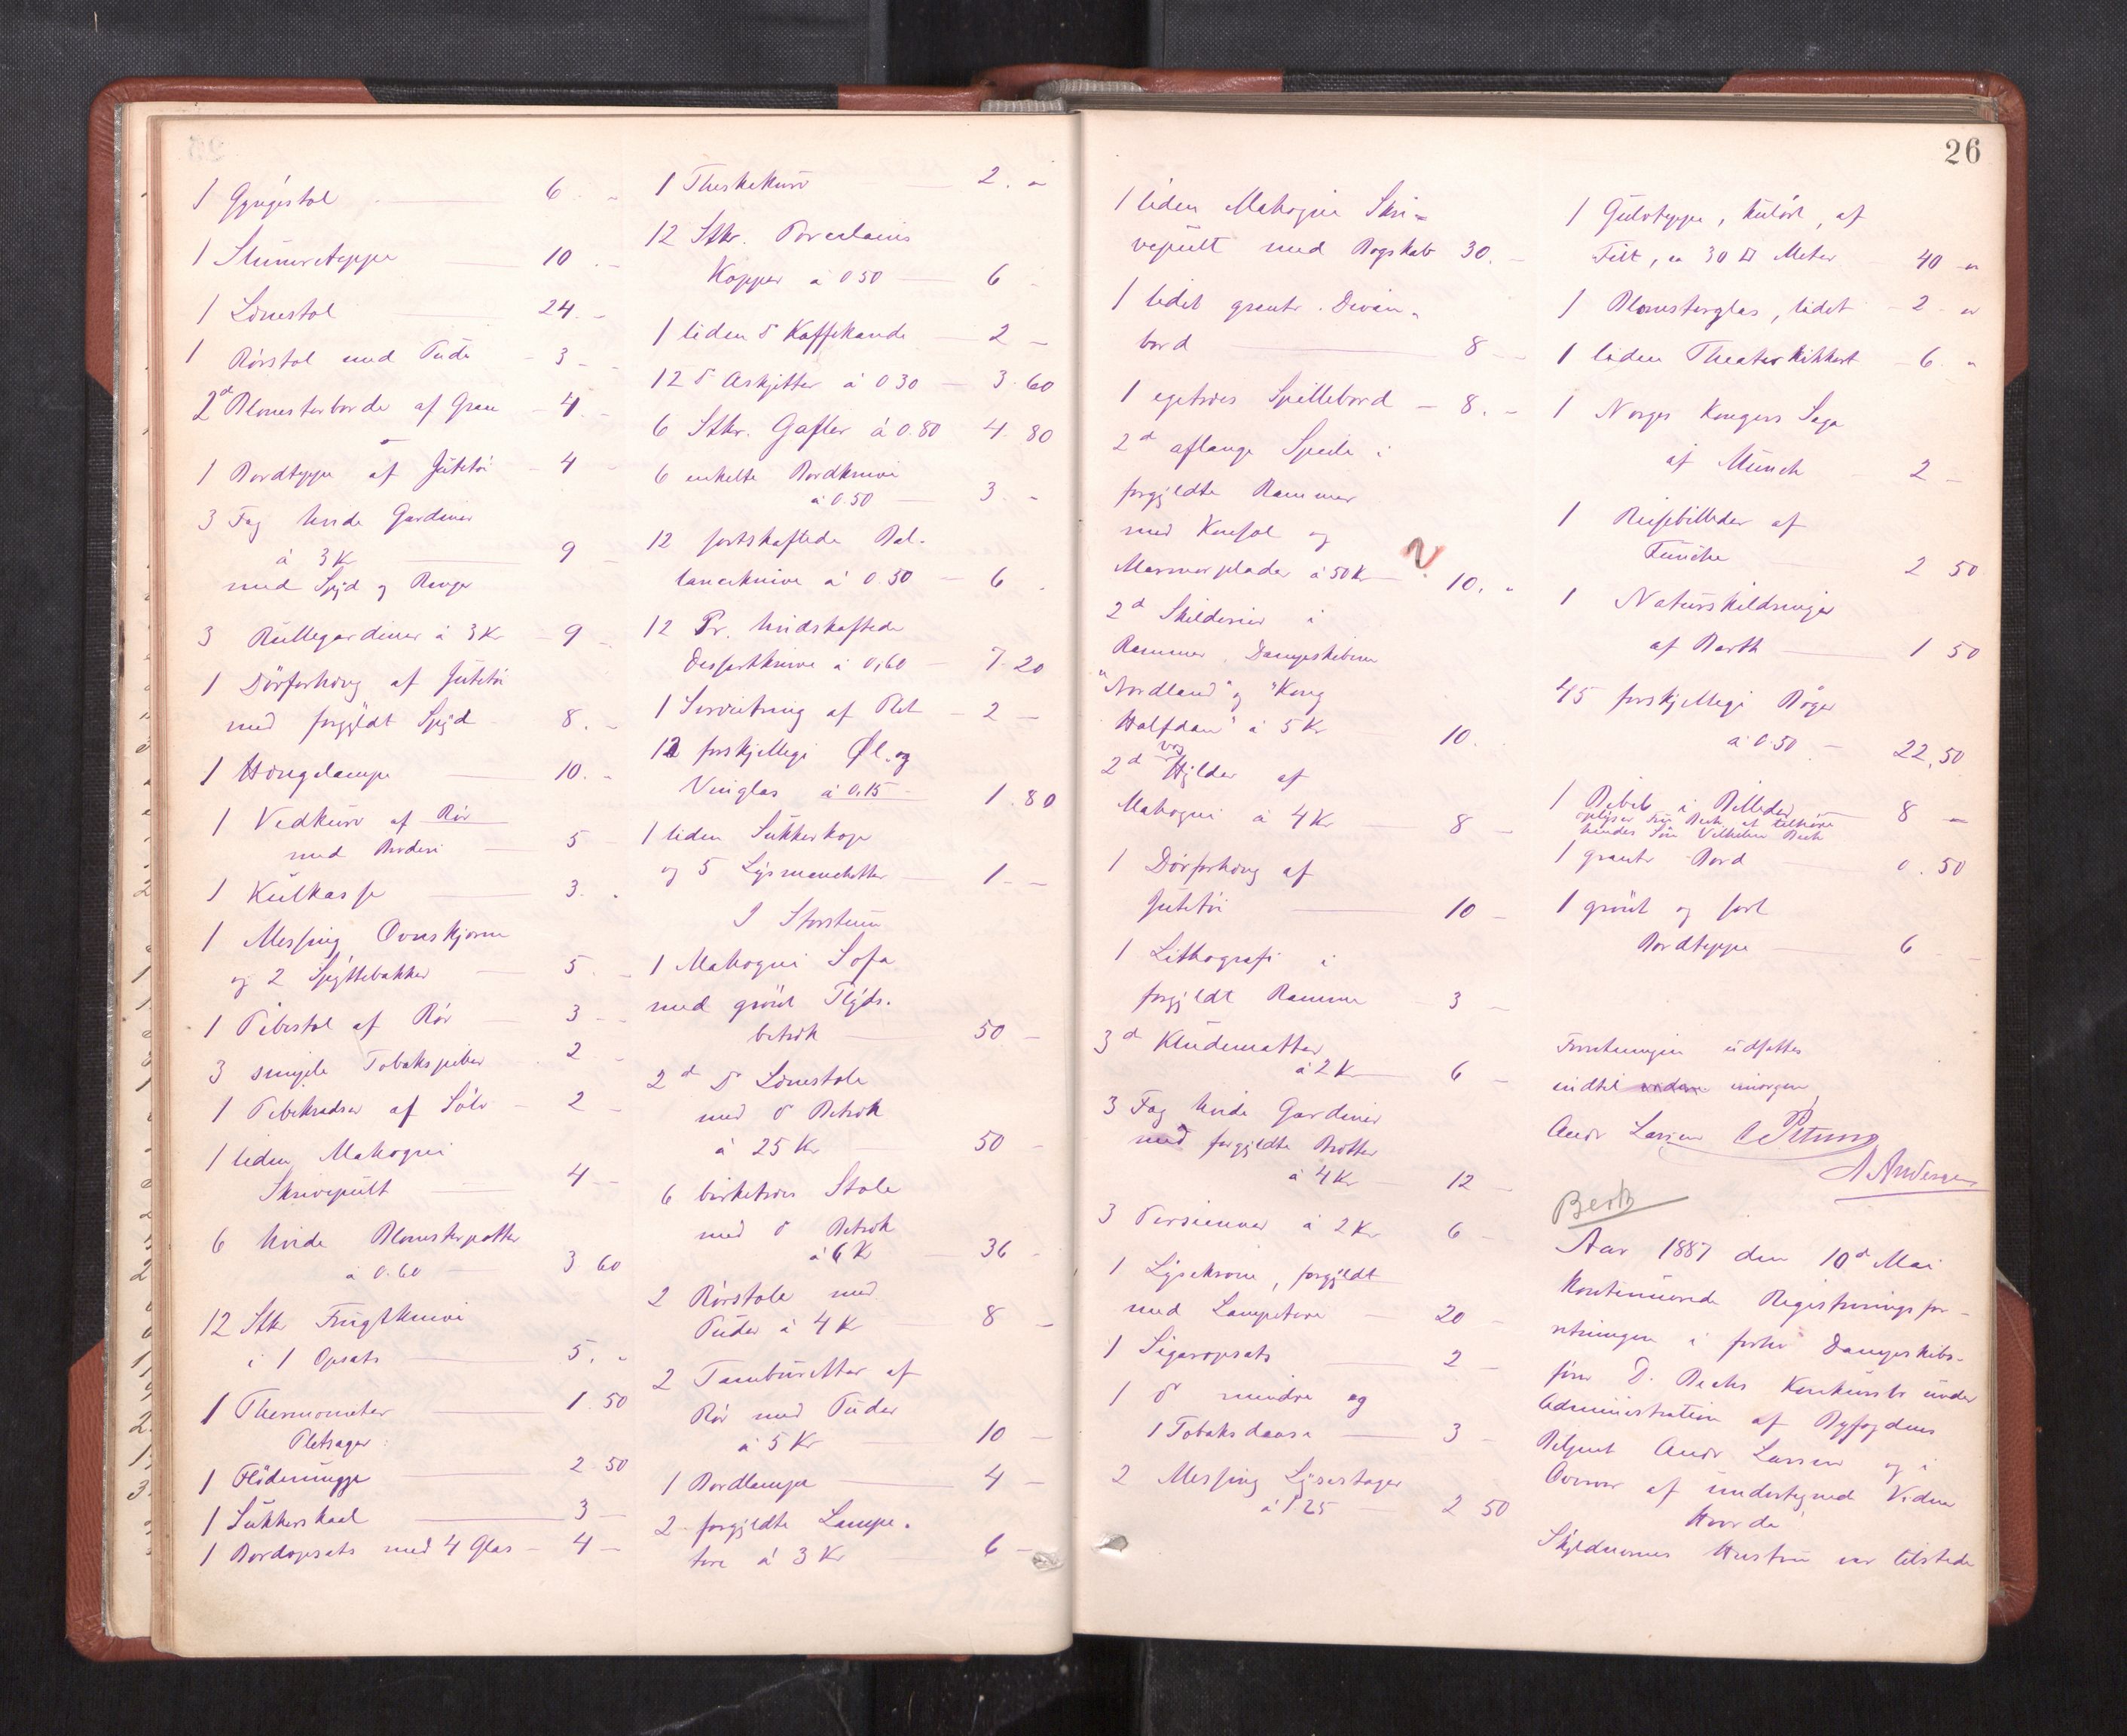 1 Gyngestol 6. -
1 Slumretæppe 10. -
1 Lænestol 24. -
1 Rörstol med Pude 3 -
2d Blomsterborde af Gran 4. -
1 Bordteppe af Jütetöi 4 -
3 Fag hvide Gardiner
à 3 Kr 9 -
med Spyd og Ringe
3 Rüllegardiner à 3 Kr 9 -
1 Dörforhæng af Jütetöi
med forgyldt Spyd 8. -
1 Hængelampe 10. -
1 Vedkurv af Rör
med Broderi 5 -
1 Külkasse 3. -
1 Messing Ovnskjærm
og 2 Spyttebakker 5. -
1 Pibestol af Rör 3 -
3 simple Tobakspiber 2 -
1 Pibekradser af Sölv 2 -
1 liden Mahogni
Skrivepult 4 -
6 hvide Blomsterpotter
à 0.60 3 60
12 Stk Frugtknive
i 1 Opsats 5. -
1 Thermometer 1.50
Pletsager:
1 Flödemugge 2 50
1 Sükkerskaal 3 -
1 Bordopsats med 4 Glas 4 -
1 Theskekurv 2. -
12 Stkr. Porcelains
Kopper à 0 50 6 -
1 liden do Kaffekande 2 -
12 do Askjetter à 0 30 3.60
6 Stkr. Gafler à 0.80 4.80
6 enkelte Bordknive
à 0.50 3. -
12 sortskaftede Bal-
lanceknive à 0.50 6 .
12 Pr. hvidskaftede
Dessertknive à 0,60 7.20
1 Servietring af Plet 2 -
12 forskjellige Øl- og
Vinglas à 0.15 1.80
1 liden Sukkerkop
og 5 Lysmanchetter 1 -
I Storstuen
1 Mahogni Sofa
med grönt Plyds-
betræk 50 -
2d do Lænestole
med do Betræk
à 25 Kr 50 -
6 birketræs Stole
med do Betræk
à 6 Kr 36 -
2 Rörstole med
Puder à 4 Kr 8 -
2 Tambüretter af
Rör med Puder
à 5 Kr 10 -
1 Bordlampe 4 -
2 forgyldte Lampe-
tere à 3 Kr 6 -
26
1 liden Mahogni Skri-
vepült med Bogskab 30. -
1 lidet grantr. Divan-
bord 8 -
1 egetræs Spillebord 8. -
2d aflange Speile i
forgyldte Rammer
med Konsol og
Marmorplader à 50 Kr 10. -
2d Skilderier i
Rammer, Dampskibene
"Nordland" og "Kong
Halfdan" à 5 Kr 10.
2d Hylder af
Mahogni à 4 Kr 8 -
1 Dörforhæng af
Jütetöi 10 -
1 Lithografi i
forgyldt Ramme 3 -
3d Kludematter
à 2 Kr 6 -
3 Fag hvide Gardiner
med forgyldte Bretter
à 4 Kr 12 -
3 Persienner à 2 Kr 6 -
1 Lysekrone, forgyldt
med Lampetere 20 -
1 Sigaropsats 2 -
1 do mindre og
1 Tobaksdaase 3 -
2 Messing Lysestager
à 1 25 2 50
1 Gulvteppe, kulört, af
Filt, ca 30 □ Meter 40 -
1 Blomsterglas, lidet 2 -
1 liden Theaterkikkert 6 -
1 Norges Kongers Saga
af Munch 2 -
1 Reisebilleder af
2 50
1 Naturskildringer
af Barth 1 50
45 forskjellige Böger
à 0.50 22.50
1 Bibel i Billeder 8 -
oplyser Fru Bech at tilhöre
hendes Sön Vilhelm Bech
1 grantr Bord 0.50
1 grönt og sort
Bordteppe 6 -
Forretningen udsattes
indtil imorgen
Andr Larsen
A Andersen
Bech
Aar 1887 den 10d Mai
kontinuerede Registreringsfor-
retningen i forhv Dampskibs-
förer D. Bechs Konkursbo under
Administration af Byfogdens
Betjent Andr Larsen og i
Overvær af undertegnede Vidner
Hvorda
Skyldnerens Hustru var tilstede